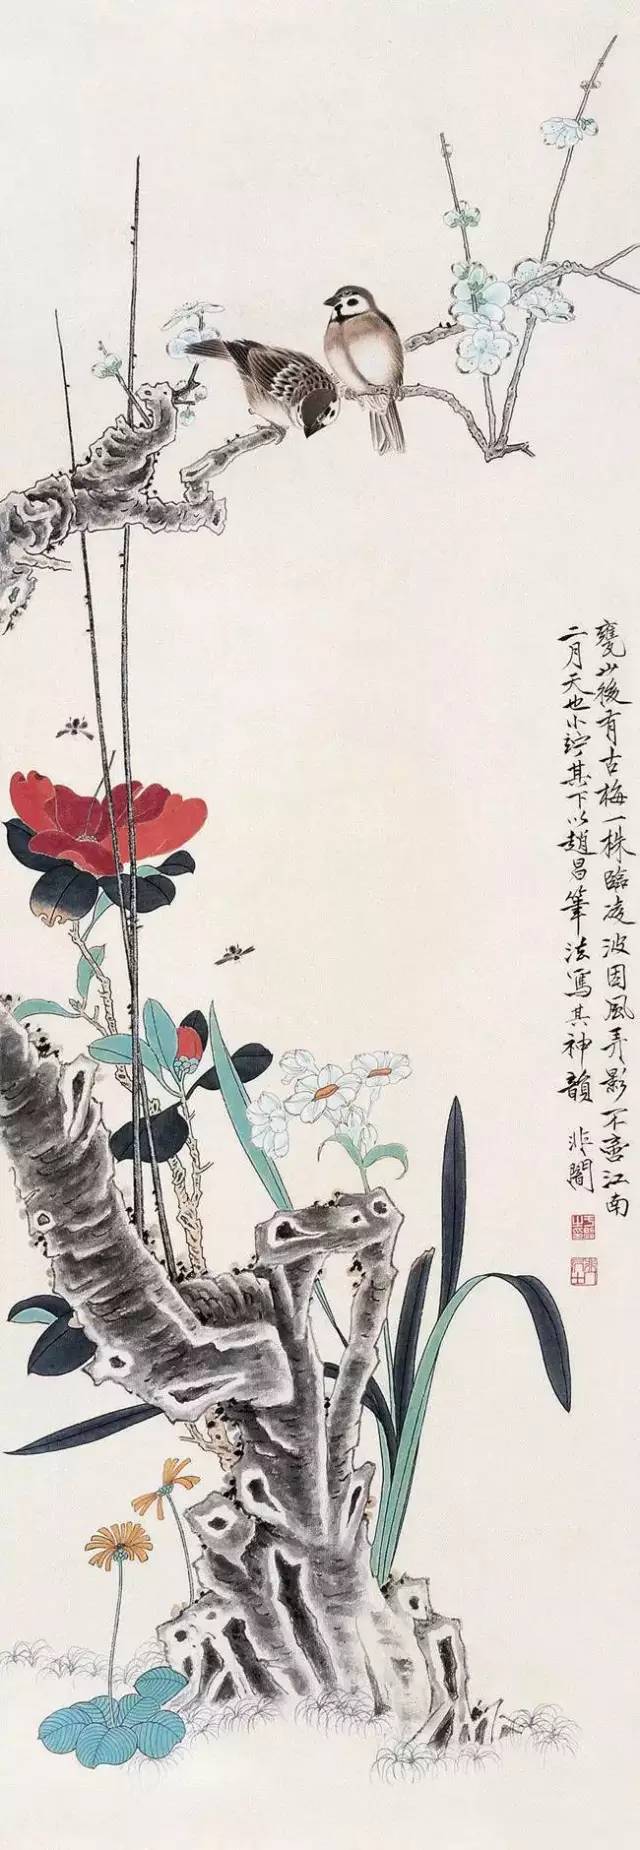 甕山後有古梅一株臨凌波因風弄影不啻江南
二月天也小竚其下以趙昌筆法寫其神韻 非闇